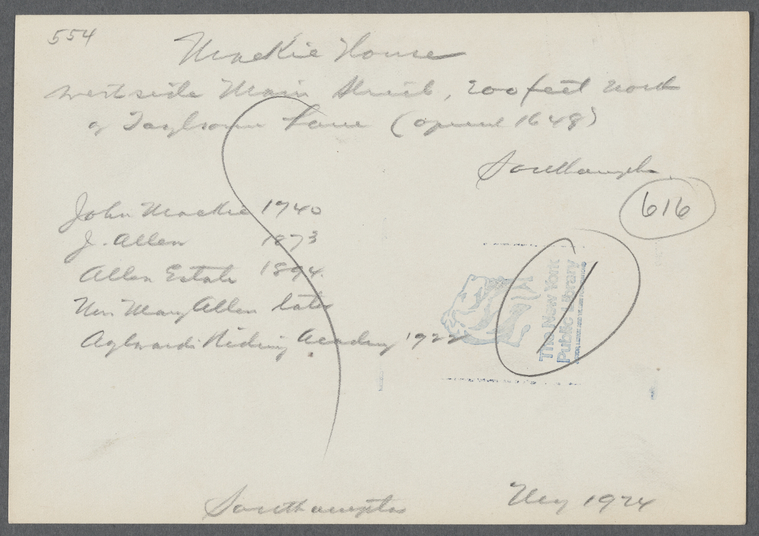 554
Mackie House
west side Main Street, 200 feet north
of Taylor Lane (opened 1648)
Southampton
616
John Mackie 1740
J. Allen 1873
Allen Estate 1894
Mary Allen later
Aylward's Riding Academy 1922
The New York
Public Library
Southampton
1924